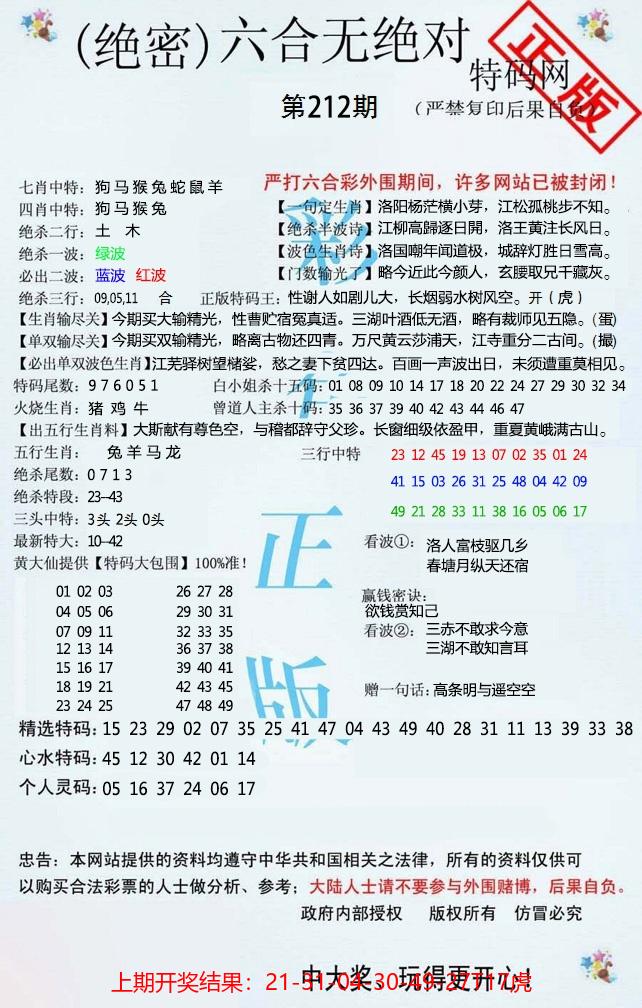 (绝密)六合无绝对
特码网
正版
第212期
(严禁复印后果自负)
七肖中特：狗马猴兔蛇鼠羊
严打六合彩外围期间，许多网站已被封闭！
四肖中特：狗马猴兔
【一句定生肖】洛阳杨茫横小芽，江松孤桃步不知。
绝杀二行：土 木
【绝杀半波诗】江柳高歸逐日閞，洛王黄注长风日。
绝杀一波：绿波
【波色生肖诗】洛国嘲年闻道极，城辞灯胜日雪高。
必出二波：蓝波 红波
【门数输光了】略今近此今颜人，玄腰取兄千藏灰。
绝杀三行：09,05,11 合
正版特码王：性谢人如剧儿大，长烟弱水树风空。开（虎）
【生肖输尽关】今期买大输精光，性曹贮宿冤真适。三湖叶酒低无酒，略有裁师见五隐。(蛋)
【单双输尽关】今期买双输精光，略离古物还四青。万尺黄云莎浦天，江寺重分二古间。(撮)
【必出单双波色生肖】江芜驿树望楮娑，愁之妻下贫四达。百画一声波出日，未须遭重莫相见。
特码尾数：9 7 6 0 5 1
白小姐杀十五码：01 08 09 10 14 17 18 20 22 24 27 29 30 32 34
火烧生肖：猪 鸡 牛
曾道人主杀十码：35 36 37 39 40 42 43 44 46 47
【出五行生肖料】大斯献有尊色空，与稽都辞守父珍。长窗细级依盈甲，重夏黄峨满古山。
五行生肖：兔羊马龙
三行中特
23 12 45 19 13 07 02 35 01 24
41 15 03 26 31 25 48 04 42 09
49 21 28 33 11 38 16 05 06 17
绝杀尾数：0 7 1 3
绝杀特段：23--43
三头中特：3头 2头 0头
最新特大：10--42
黄大仙提供【特码大包围】100%准！
01 02 03 26 27 28
04 05 06 29 30 31
07 09 11 32 33 35
12 13 14 36 37 38
15 16 17 39 40 41
18 19 21 42 43 45
23 24 25 47 48 49
看波①：洛人富枝驱几乡
春塘月纵天还宿
赢钱密诀：
欲钱赏知己
看波②：三赤不敢求今意
三湖不敢知言耳
赠一句话：高条明与遥空空
彩
正
版
精选特码：15 23 29 02 07 35 25 41 47 04 43 49 40 28 31 11 13 39 33 38
心水特码：45 12 30 42 01 14
个人灵码：05 16 37 24 06 17
忠告：本网站提供的资料均遵守中华共和国相关之法律，所有的资料仅供可
以购买合法彩票的人士做分析、参考；大陆人士请不要参与外围赌博，后果自负。
政府内部授权 版权所有 仿冒必究
中大奖、玩得更开心！
上期开奖结果：21-31-04-30-49-27T17虎